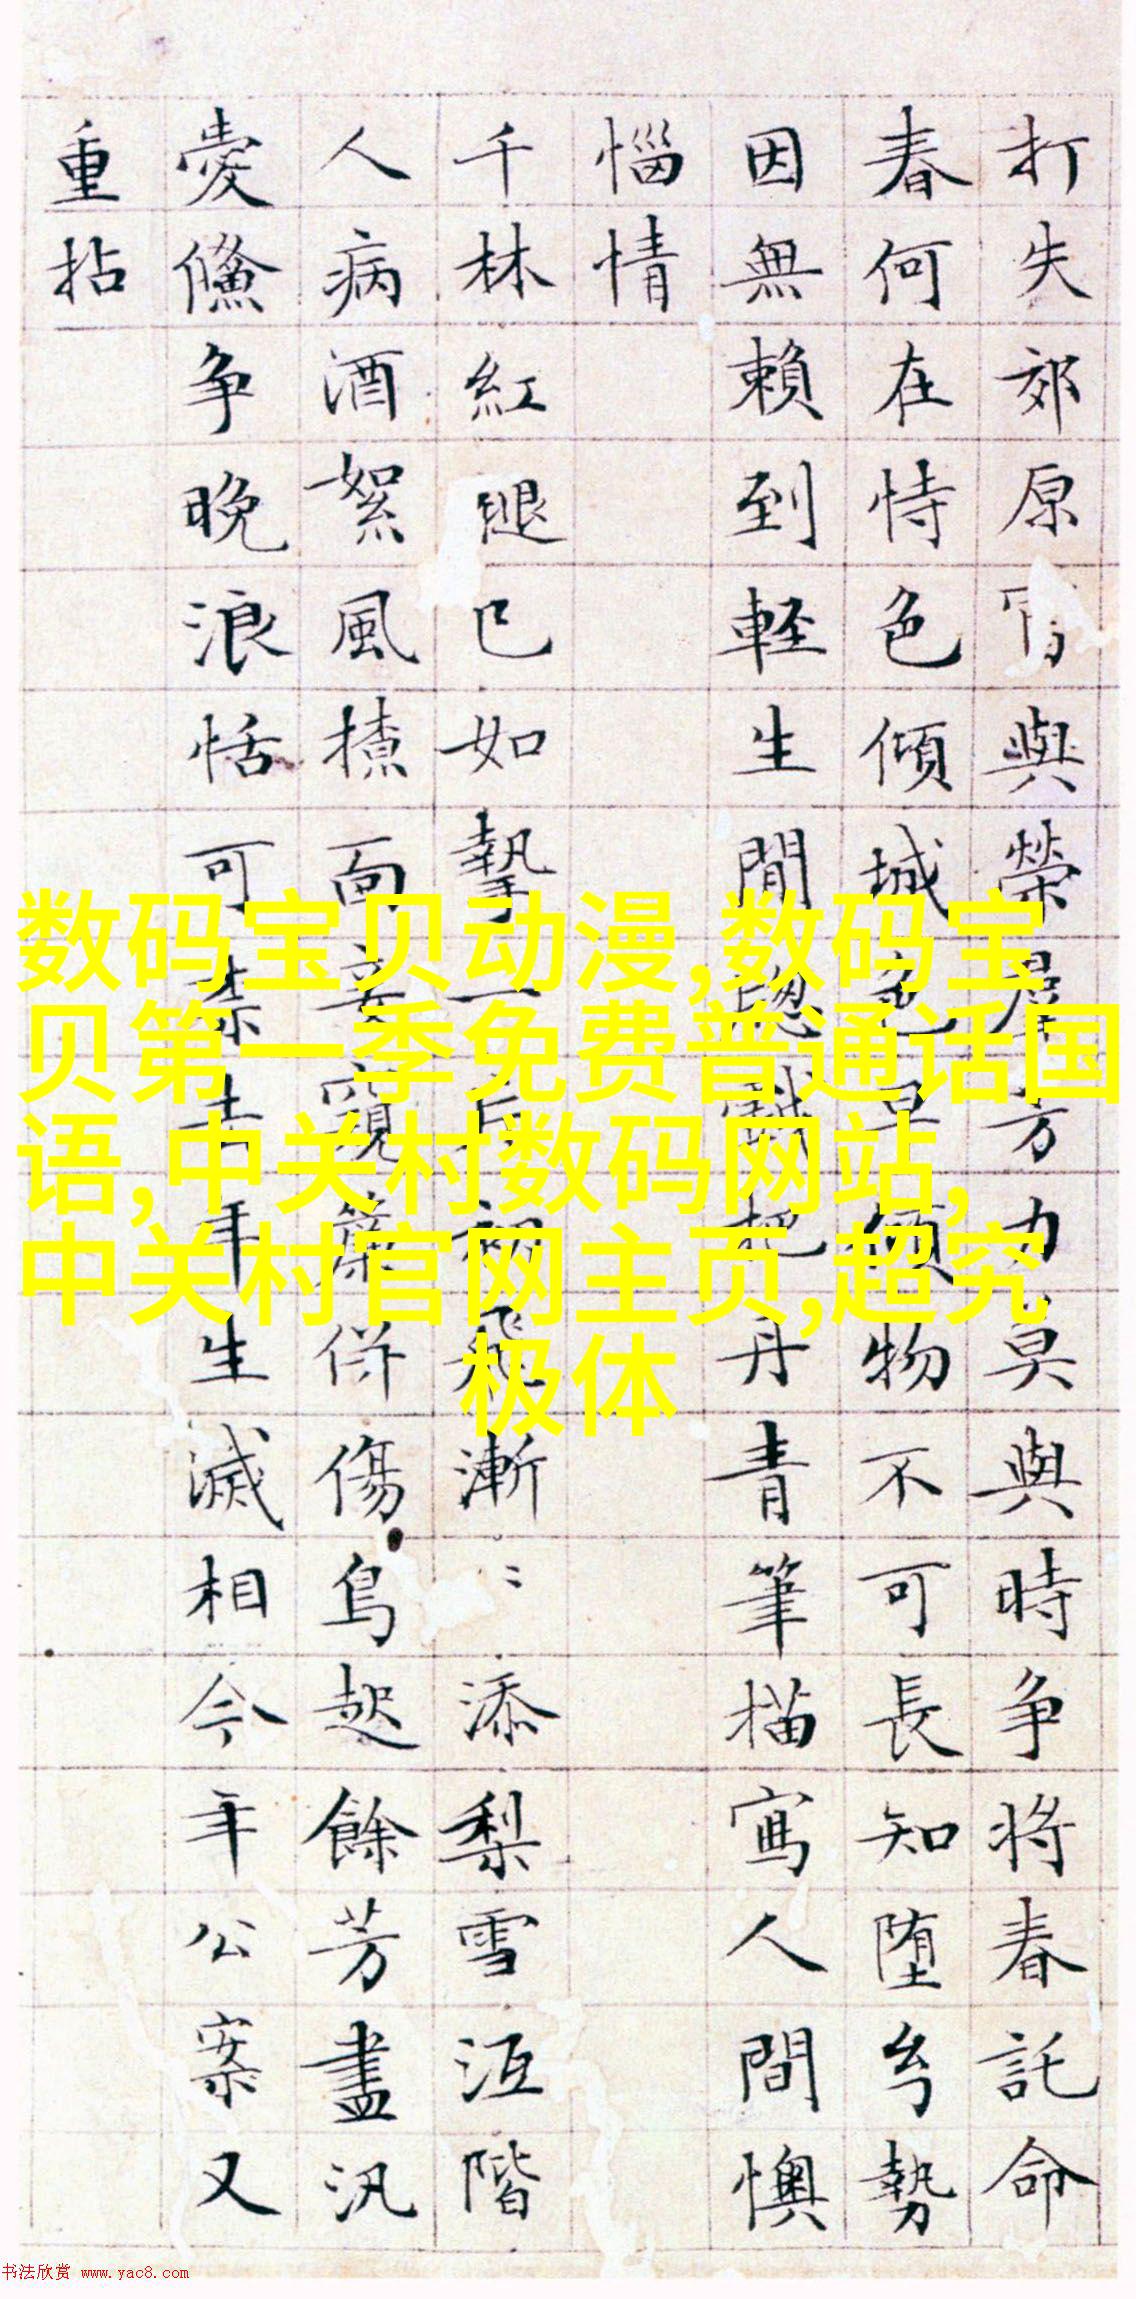 打失郊原與榮方力莫與時争将春託命
春何在恃色傾城色早傾物不可長知堕勢
因無賴到輕生閒愁把丹青筆描寫人間懊
惱情
千林紅褪已如一片初飛漸〻添梨雪沍階
人病酒絮風揸面妾窺簾併傷鳥起餘芳盡汎
愛鯈争晚浪恬可奈去年生滅相今年公案又
重拈
数码宝贝动漫,数码宝
贝第一季免费普通话国
语,中关村数码网站,
中关村官网主页,超究
极体
书法欣赏 www.yac8.com